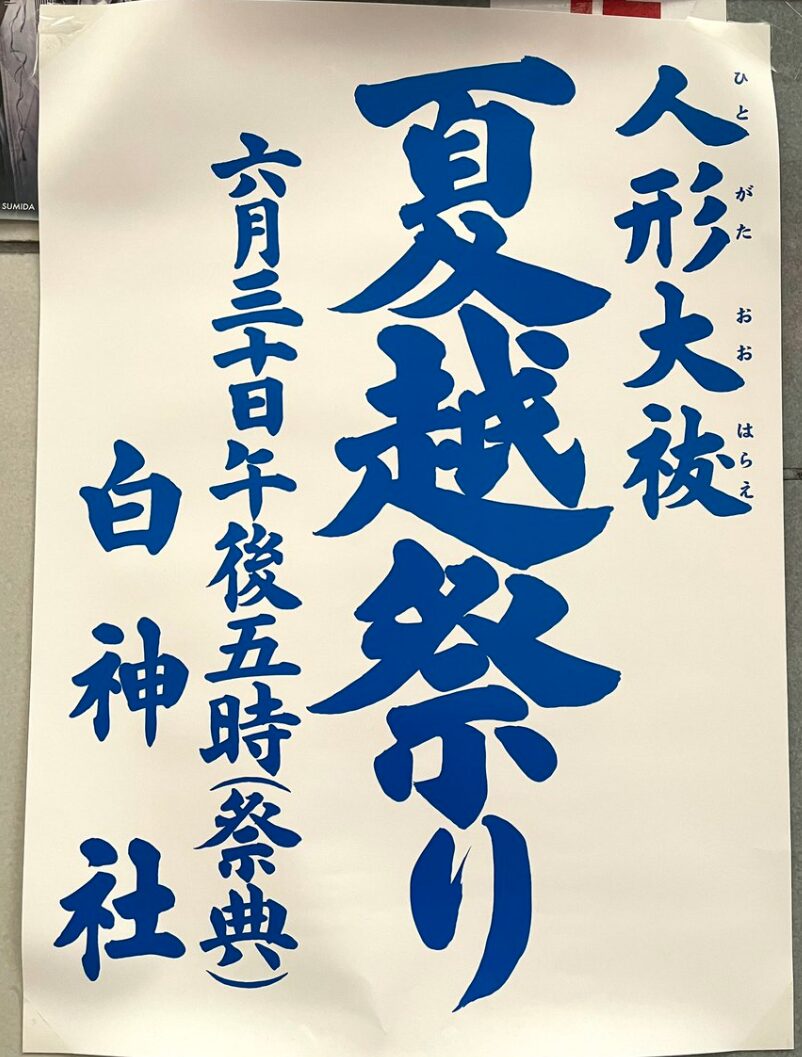 人形大祓
ひとがた おおはらえ
夏越祭り
六月三十日午後五時(祭典)
白神社
SUMIDA